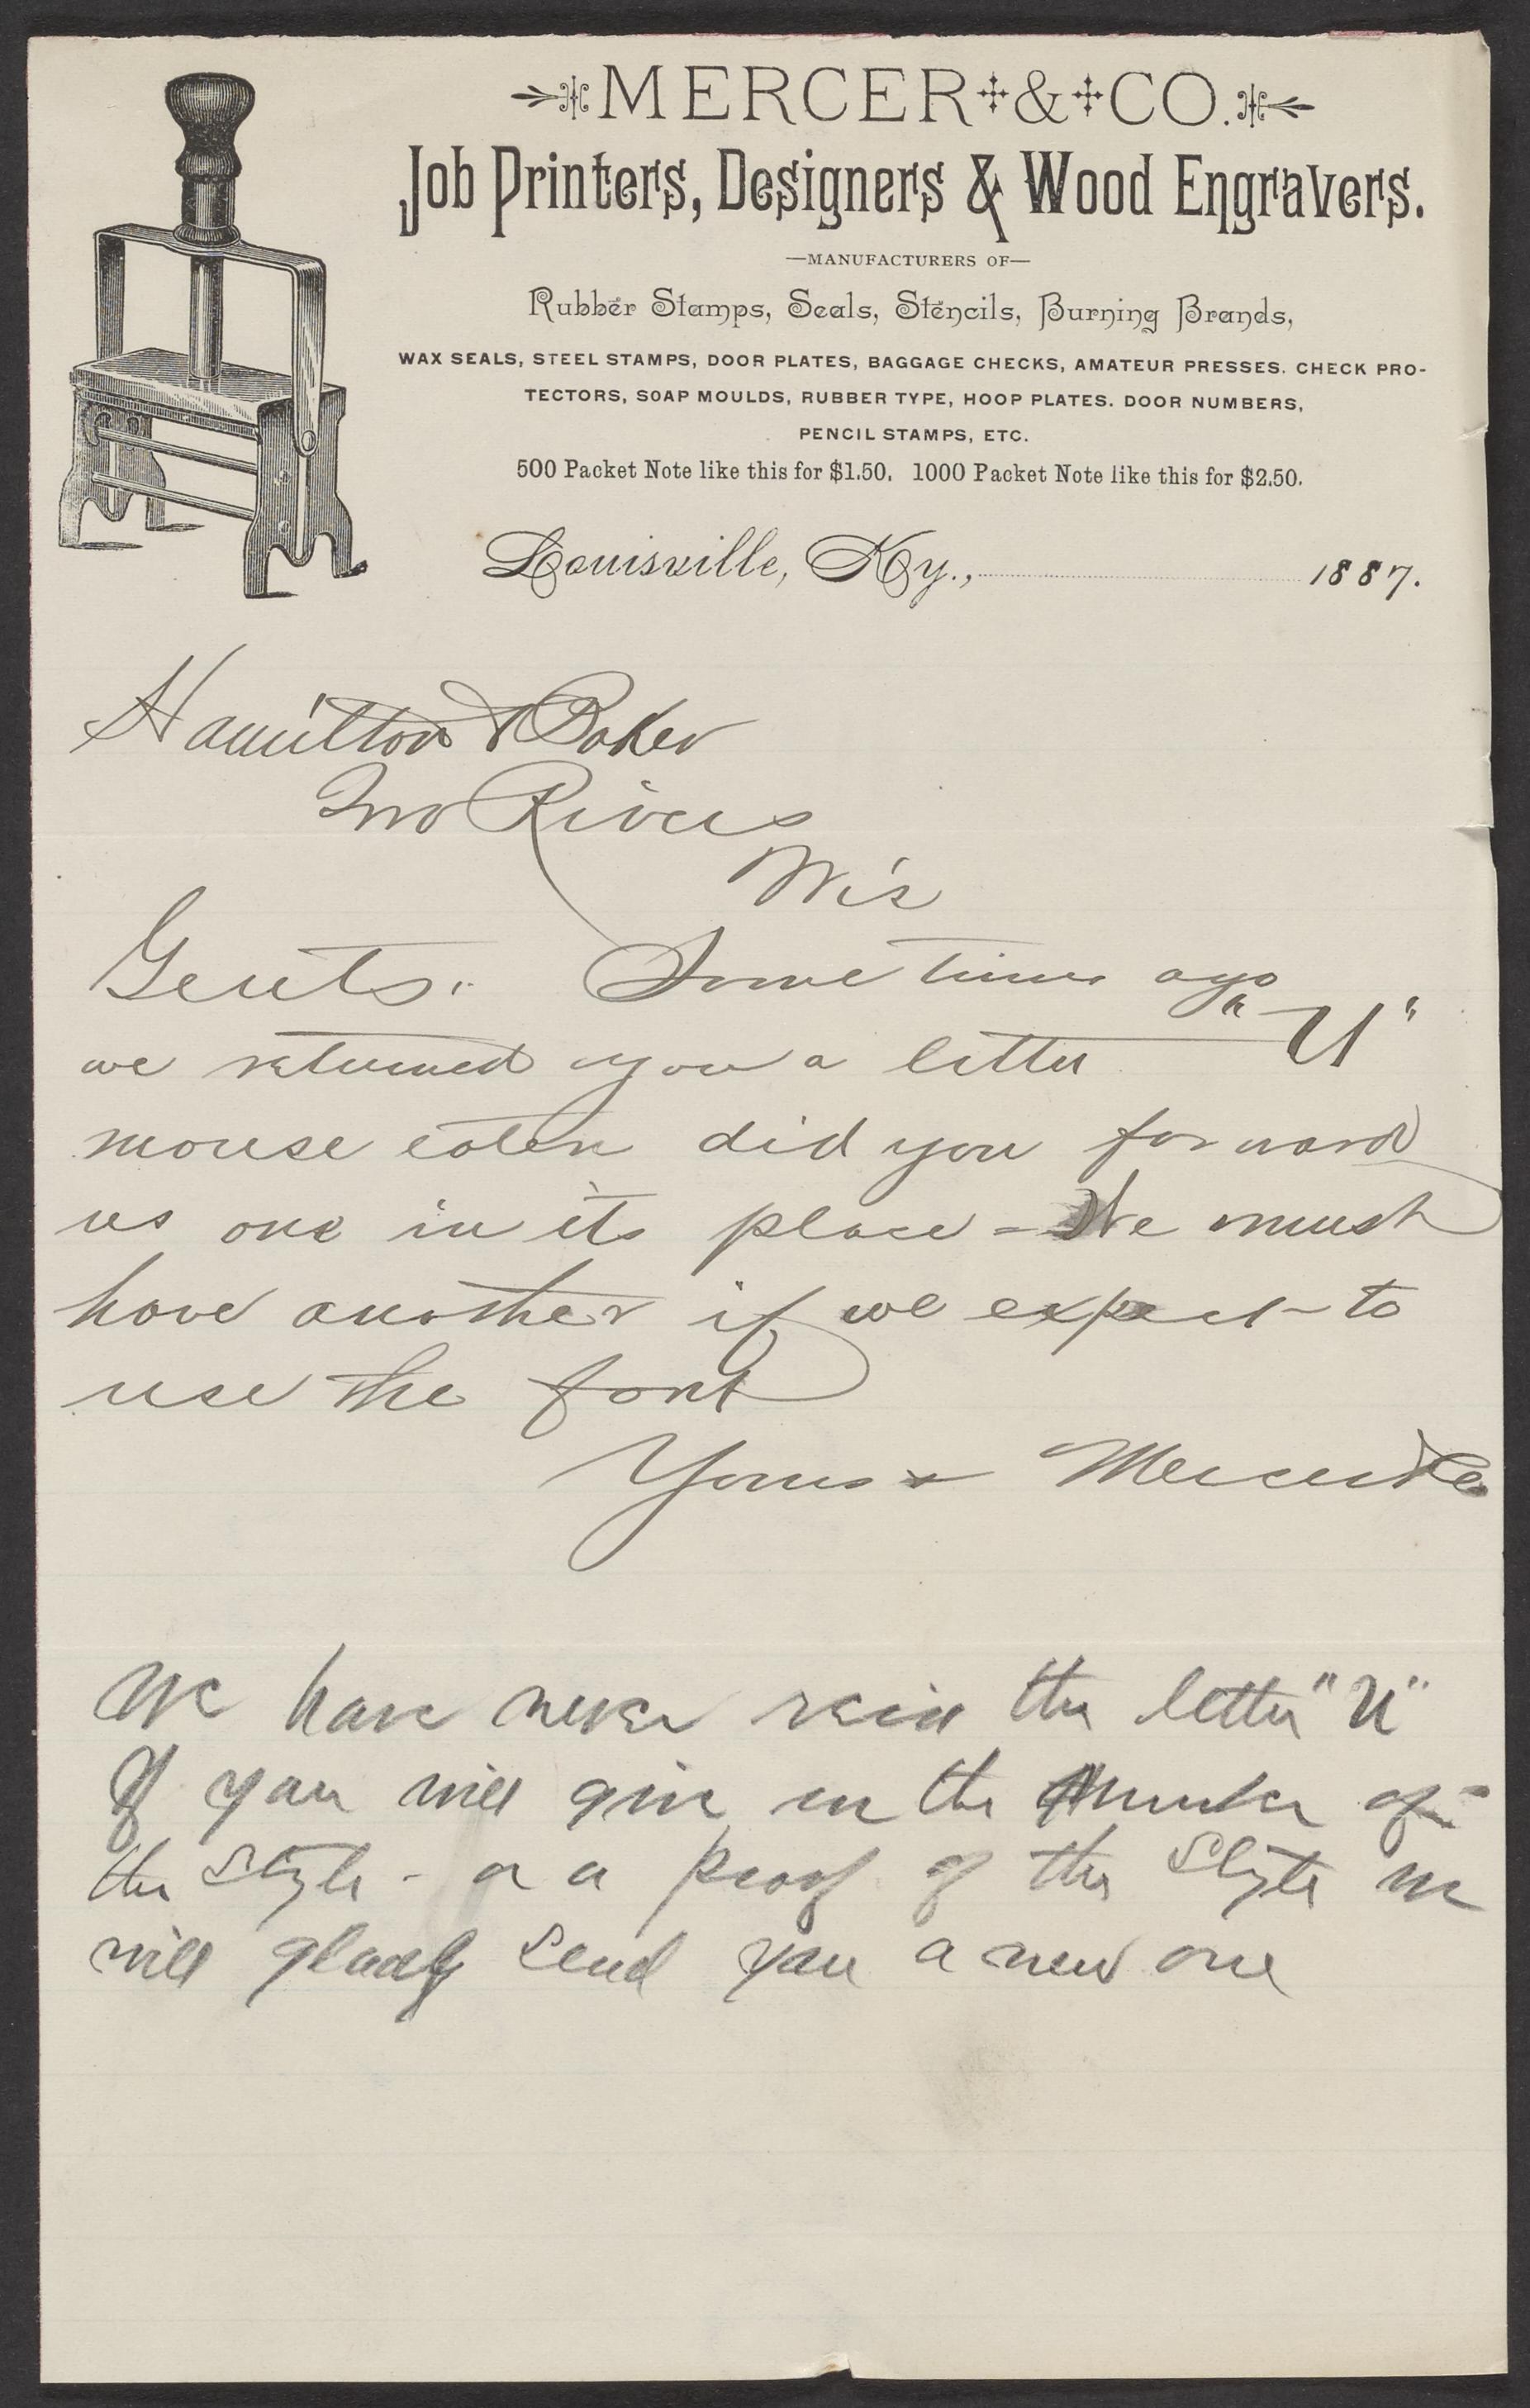 MERCER & CO.
Job Printers, Designers & Wood Engravers.
—MANUFACTURERS OF—
Rubber Stamps, Seals, Stencils, Burning Brands,
WAX SEALS, STEEL STAMPS, DOOR PLATES, BAGGAGE CHECKS, AMATEUR PRESSES. CHECK PRO-
TECTORS, SOAP MOULDS, RUBBER TYPE, HOOP PLATES. DOOR NUMBERS,
PENCIL STAMPS, ETC.
500 Packet Note like this for $1.50. 1000 Packet Note like this for $2.50.
Louisville, Ky., 1887.
Hamilton & Baker
Two Rivers
Wis
Gents: Some time ago
we returned you a letter "U"
mouse eaten did you forward
us one in its place - We must
have another if we expect to
use the font
Yours & Mercer & Co
We have never recd the letter "U"
If you will give us the number of
the Style - or a proof of the Style we
will gladly send you a new one